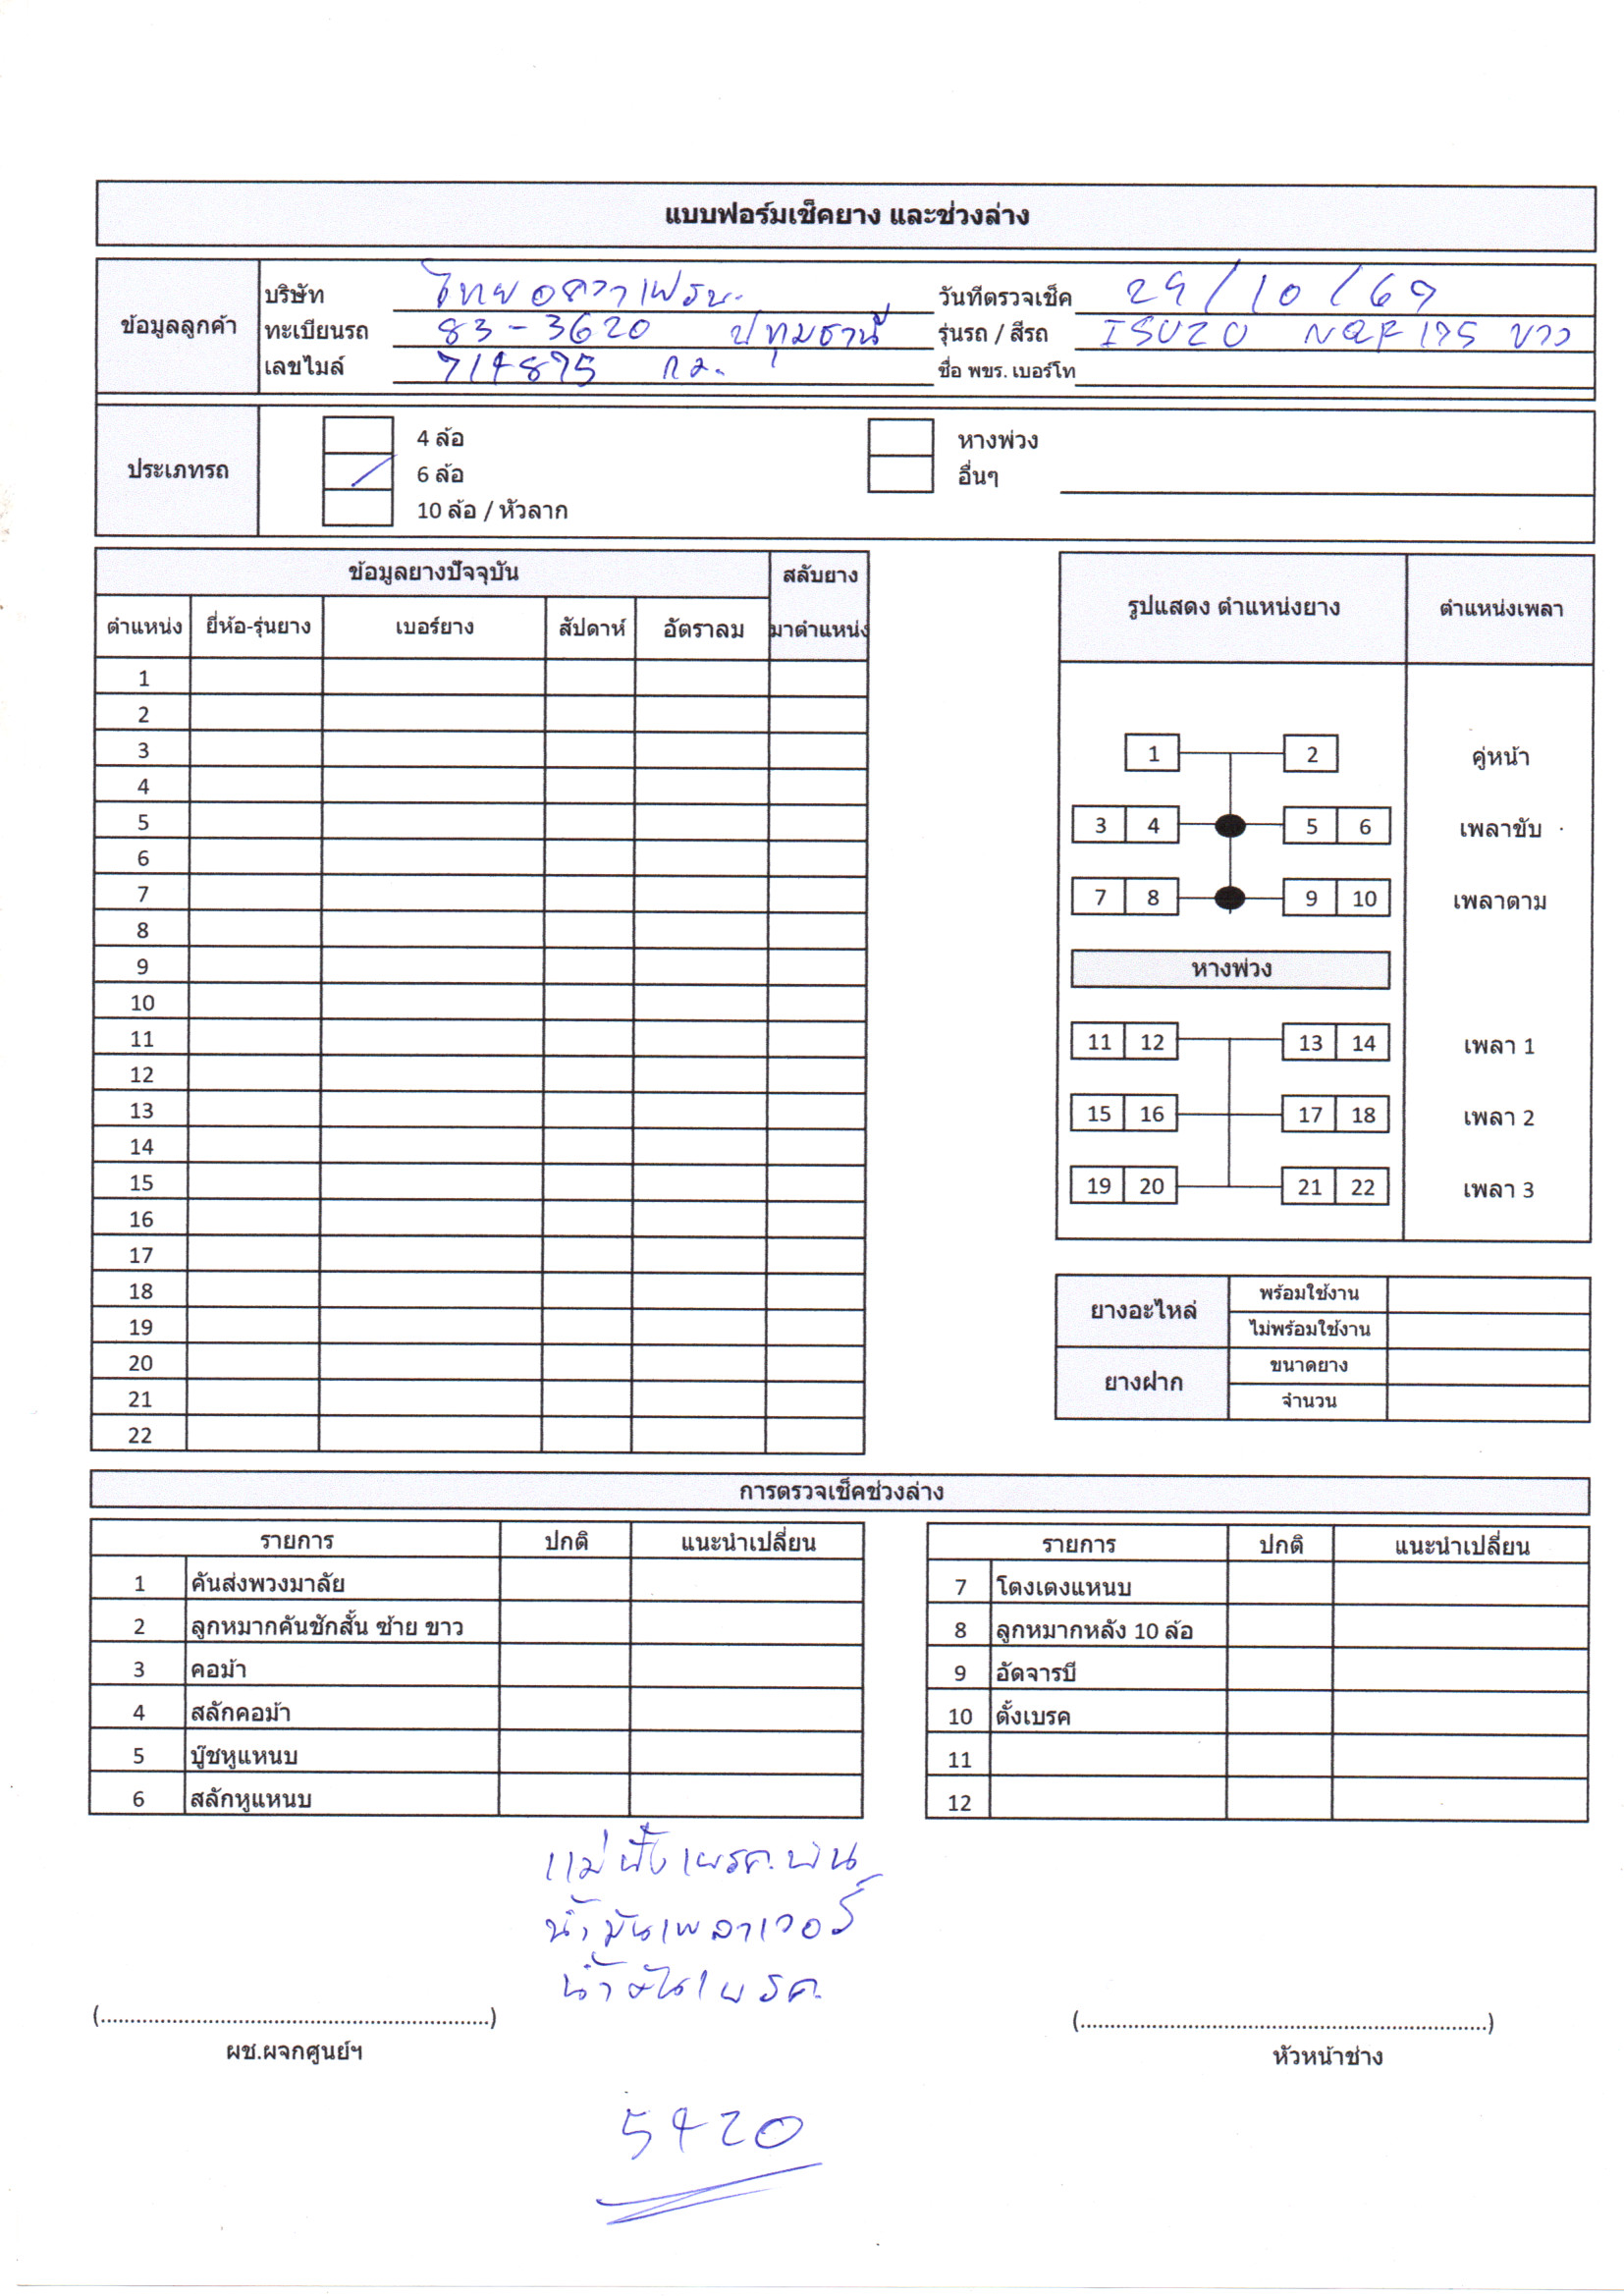 แบบฟอร์มเช็คยาง และช่วงล่าง
ข้อมูลลูกค้า
บริษัท ไทย อควา เฟรช. วันที่ตรวจเช็ค 29/10/69
ทะเบียนรถ 83-3620 ปทุมธานี รุ่นรถ / สีรถ ISUZO NQR 175 ขาว
เลขไมล์ 714875 กม. ชื่อ พขร. เบอร์โท
ประเภทรถ
4 ล้อ หางพ่วง
/ 6 ล้อ อื่นๆ
10 ล้อ / หัวลาก
ข้อมูลยางปัจจุบัน สลับยาง
ตำแหน่ง ยี่ห้อ-รุ่นยาง เบอร์ยาง สัปดาห์ อัตราลม มาตำแหน่ง
1
2
3
4
5
6
7
8
9
10
11
12
13
14
15
16
17
18
19
20
21
22
รูปแสดง ตำแหน่งยาง ตำแหน่งเพลา
1 2 คู่หน้า
3 4 5 6 เพลาขับ
7 8 9 10 เพลาตาม
หางพ่วง
11 12 13 14 เพลา 1
15 16 17 18 เพลา 2
19 20 21 22 เพลา 3
ยางอะไหล่ พร้อมใช้งาน
ไม่พร้อมใช้งาน
ยางฝาก ขนาดยาง
จำนวน
การตรวจเช็คช่วงล่าง
รายการ ปกติ แนะนำเปลี่ยน
1 คันส่งพวงมาลัย
2 ลูกหมากคันชักสั้น ซ้าย ขาว
3 คอม้า
4 สลักคอม้า
5 บู๊ชหูแหนบ
6 สลักหูแหนบ
รายการ ปกติ แนะนำเปลี่ยน
7 โตงเตงแหนบ
8 ลูกหมากหลัง 10 ล้อ
9 อัดจารบี
10 ตั้งเบรค
11
12
แม่ปั๊มเบรค.บน
น้ำมันเพาเวอร์
น้ำมันเบรค.
(..............................) (..............................)
ผช.ผจกศูนย์ฯ หัวหน้าช่าง
5420